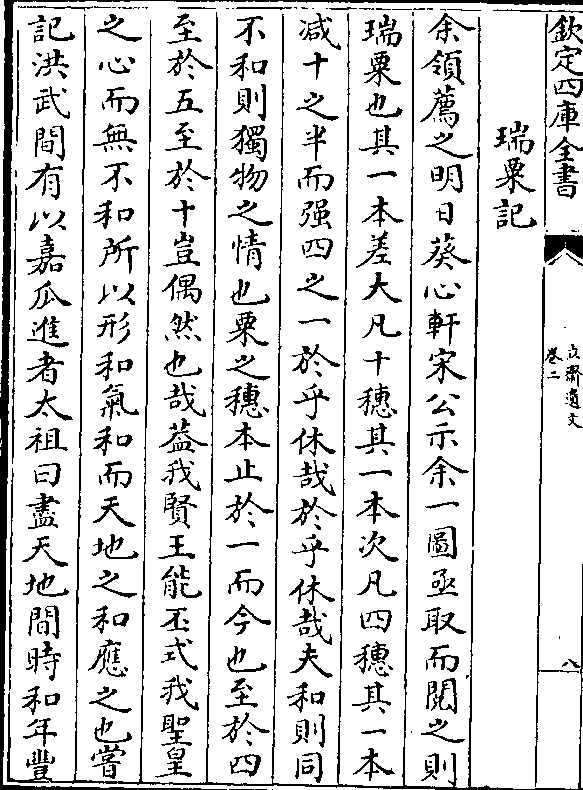 欽定四庫全書
立齋遺文
卷二
八
瑞粟記
余領薦之明日葵心軒宋公示余一圖亟取而閱之則
瑞粟也其一本差大凡十穗其一本次凡四穗其一本
減十之半而强四之一於乎休哉於乎休哉夫和則同
不和則獨物之情也粟之穗本止於一而今也至於四
至於五至於十豈偶然也哉葢我賢王能丕式我聖皇
之心而無不和所以形和氣和而天地之和應之也嘗
記洪武間有以嘉瓜進者太祖曰盡天地間時和年豐